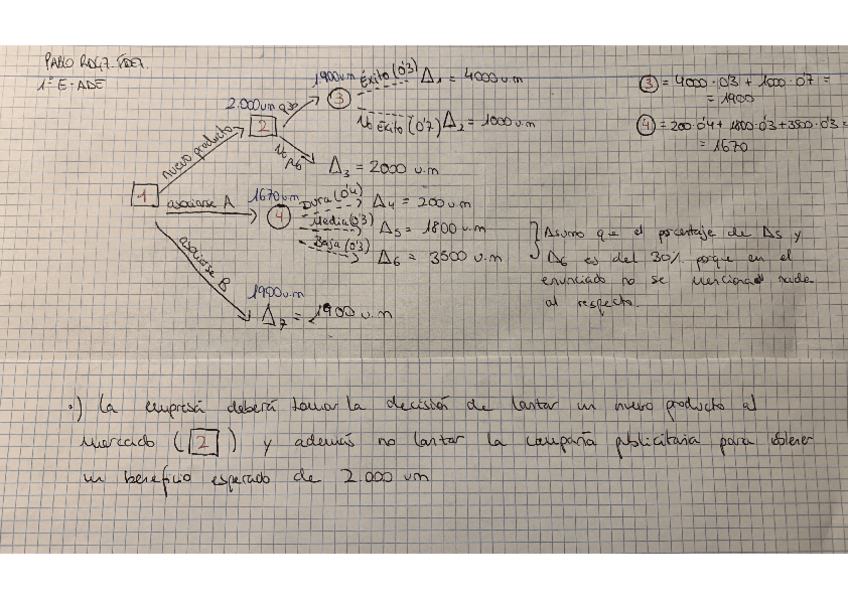 PABLO RDGZ. FDEZ.
1º E-ADE
nuevo producto
asociarse A
asociarse B
1
2.000 u.m
2
No
1900 u.m
3
Éxito (0'3) Δ1 = 4000 u.m
No Éxito (0'7) Δ2 = 1000 u.m
Δ3 = 2000 u.m
1670 u.m
4
Dura (0'4) Δ4 = 200 u.m
Media (0'3) Δ5 = 1800 u.m
Baja (0'3) Δ6 = 3500 u.m
1900 u.m
Δ7 = 1900 u.m
3 = 4000·0'3 + 1000·0'7 =
= 1900
4 = 200·0'4 + 1800·0'3 + 3500·0'3 =
= 1670
} Asumo que el porcentaje de Δ5 y
Δ6 es del 30% porque en el
enunciado no se menciona nada
al respecto.
·) La empresa deberá tomar la decisión de lanzar un nuevo producto al
mercado ( 2 ) y además no lanzar la campaña publicitaria para obtener
un beneficio esperado de 2.000 u.m